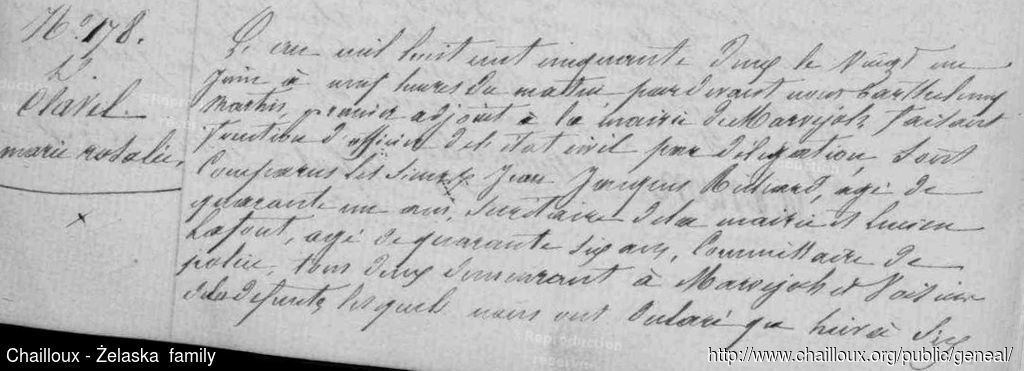 N.º 178.
D.
Clavel
marie rosalie,
L'an mil huit cent cinquante deux le vingt un
Juin à neuf heures du matin, pardevant nous barthelemy
Martin, premier adjoint à la mairie de Marvejols faisant
fonction d'officier de l'état civil par délégation, sont
Comparus les sieurs Jean Jacques , âgé de
quarante un ans, Secrétaire de la mairie et Lucien
Lafont, agé de quarante six ans, Commissaire de
police, tous deux demeurant à Marvejols et voisins
de la défunte, lesquels nous ont déclaré que hier à six
Chailloux - Żelaska family
http://www.chailloux.org/public/geneal/